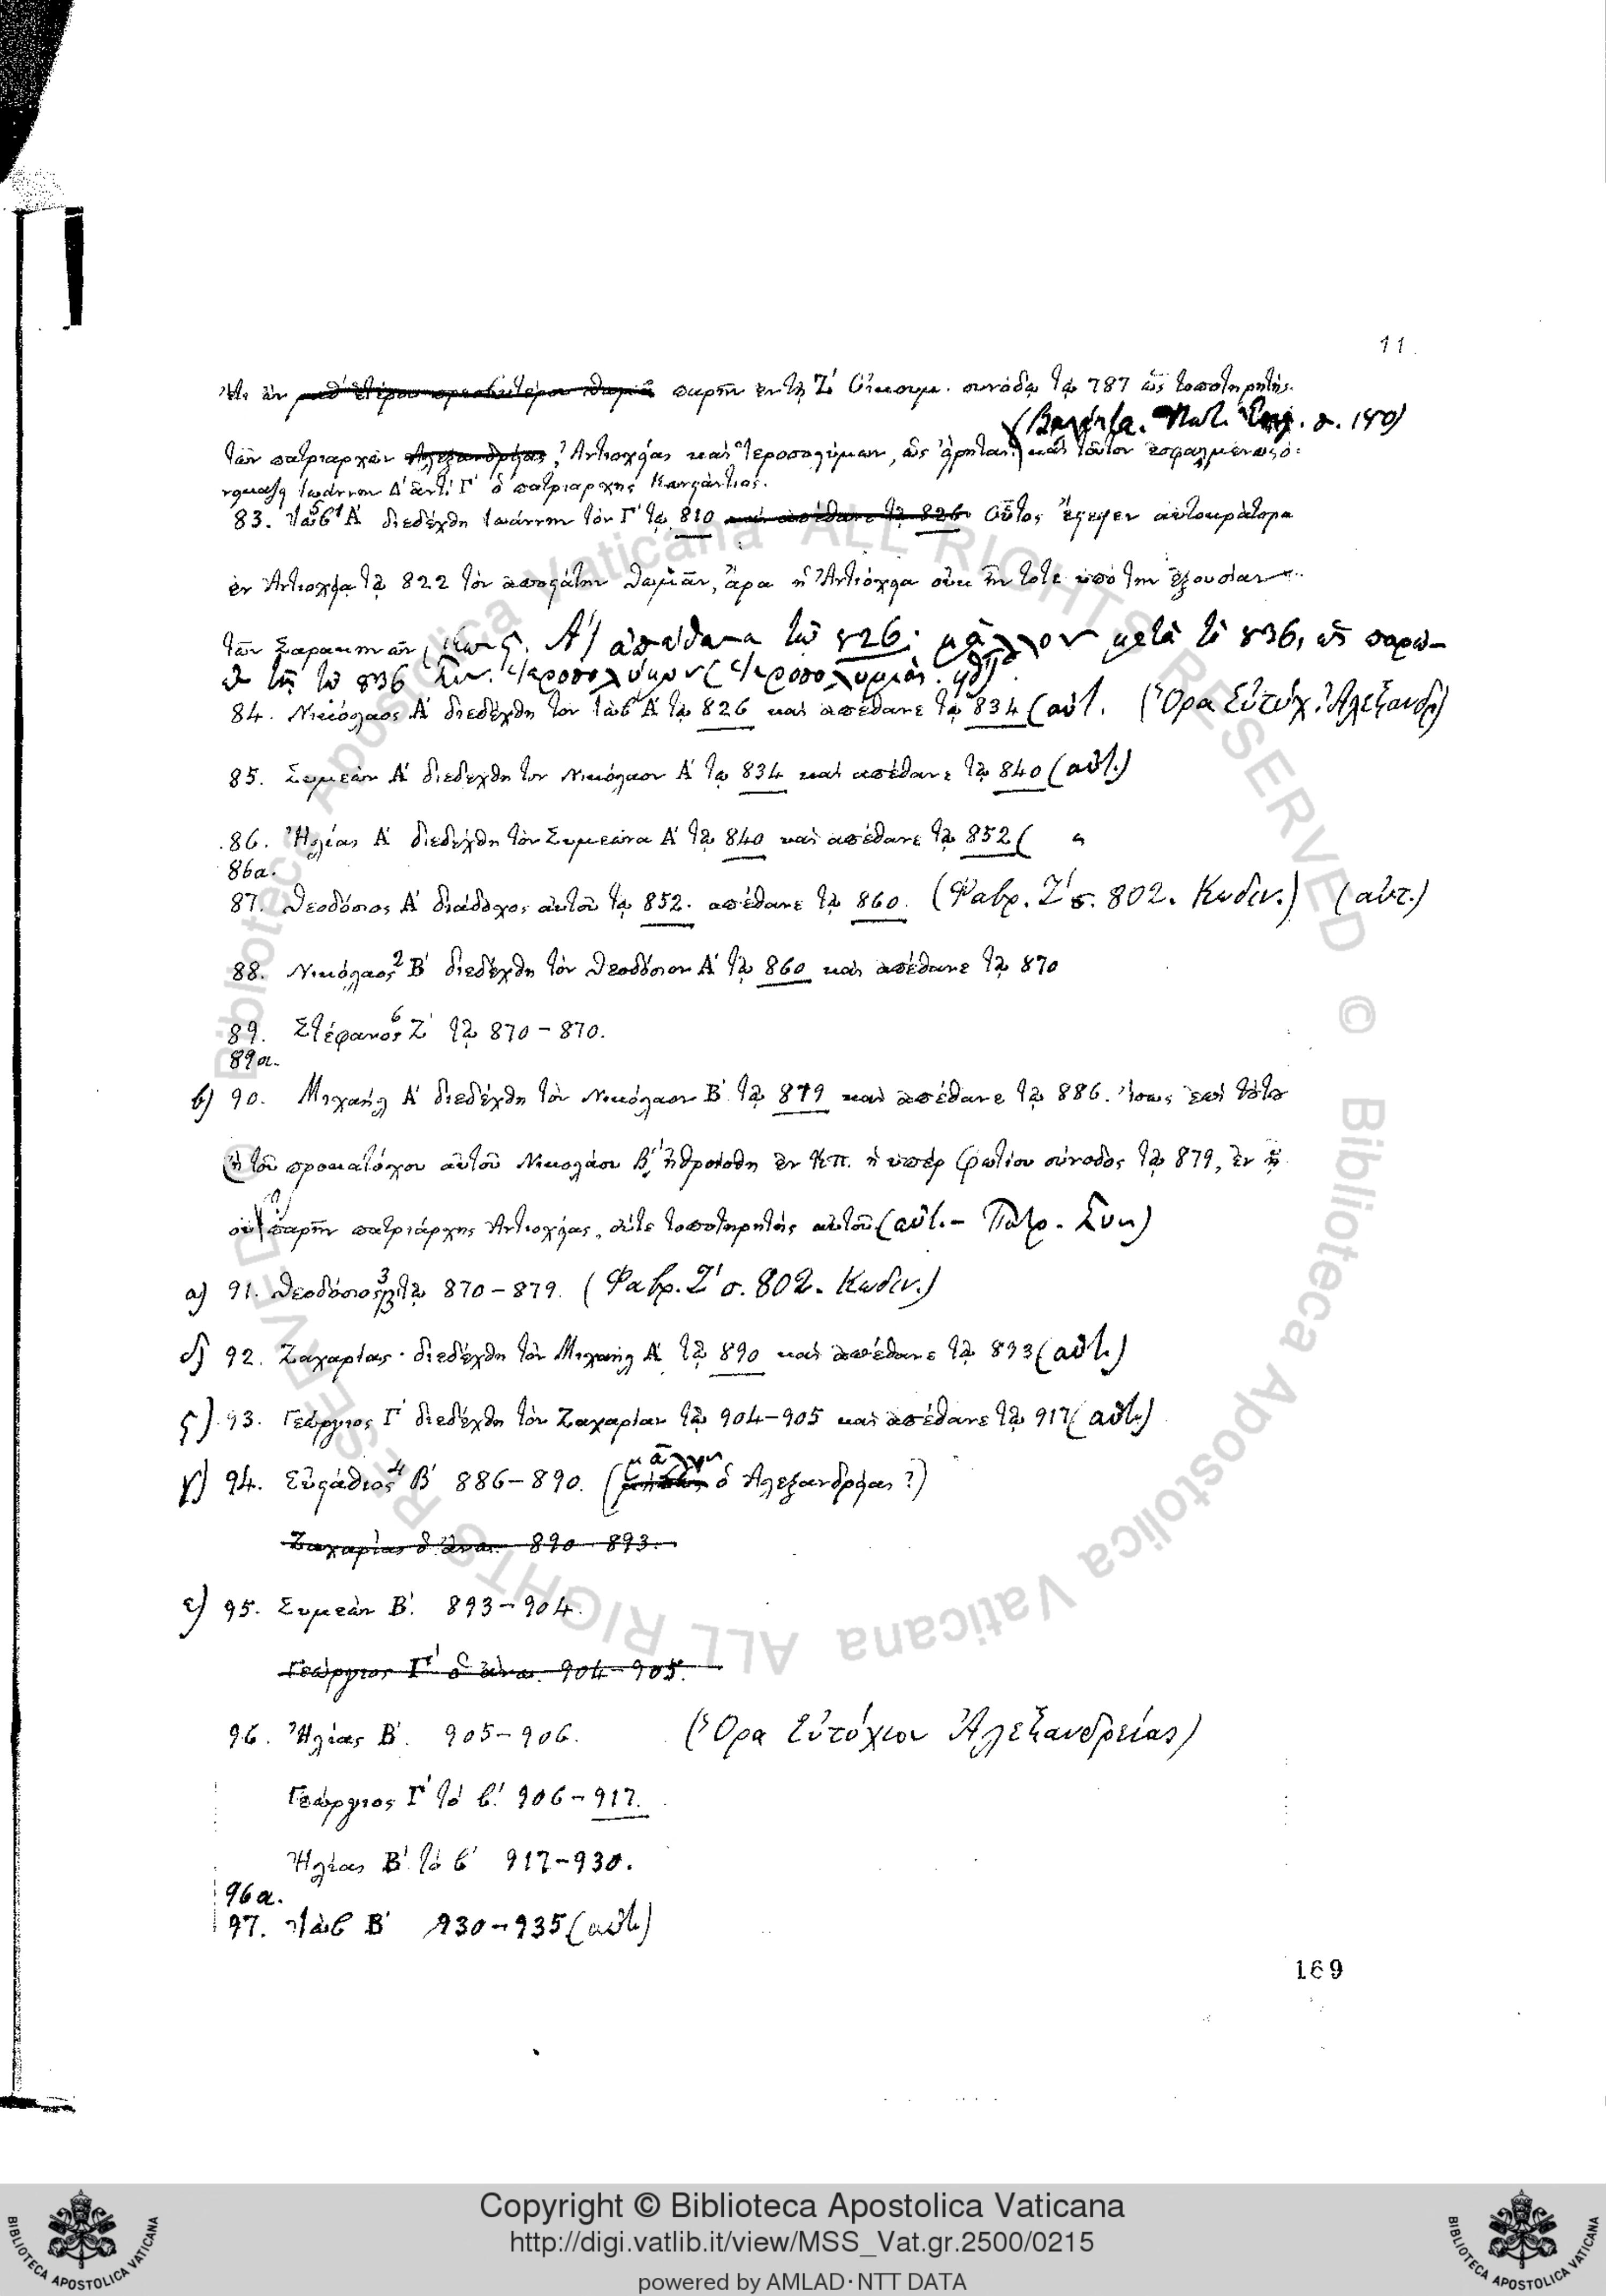 11.
παρῆν ἐν τῇ Ζ' Οἰκουμ. συνόδῳ τῷ 787 ὡς τοποτηρητὴς
σ. 140)
τῶν πατριαρχῶν Ἀλεξανδρείας, Ἀντιοχείας καὶ Ἱεροσολύμων, ὡς εἴρηται καὶ τοῦτον ἐσφαλμένως ὀ-
Ἰωάννην Δ' ἀντὶ Γ' ὁ πατριάρχης Κωνστάντιος.
83. Ἰὼβ Α' διεδέχθη Ἰωάννην τὸν Γ' τῷ 810 καὶ ἀπέθανε τῷ 826 Οὗτος ἔστεψεν αὐτοκράτορα
ἐν Ἀντιοχείᾳ τῷ 822 τὸν ἀποστάτην Θωμᾶν, ἄρα ἡ Ἀντιόχεια οὐκ ἦν τότε ὑπὸ τὴν ἐξουσίαν
τῶν Σαρακηνῶν, ἀπέθανε τῷ 826· μᾶλλον μετὰ τὸ 836, ὡς παρὼ-
ν τῇ τῷ 836 Συν. Ἱεροσολύμων (
84. Νικόλαος Α' διεδέχθη τὸν Ἰὼβ Α' τῷ 826 καὶ ἀπέθανε τῷ 834 (αὐτ. (Ὅρα Εὐτύχ. Ἀλεξανδρ)
85. Συμεὼν Α' διεδέχθη τὸν Νικόλαον Α' τῷ 834 καὶ ἀπέθανε τῷ 840 (αὐτ.)
86. Ἠλίας Α' διεδέχθη τὸν Συμεῶνα Α' τῷ 840 καὶ ἀπέθανε τῷ 852 ( "
86α.
87. Θεοδόσιος Α' διάδοχος αὐτοῦ τῷ 852. ἀπέθανε τῷ 860. (Φαβρ. Ζ' σ. 802. Κωδιν.) (αὐτ.)
88. Νικόλαος 2 Β' διεδέχθη τὸν Θεοδόσιον Α' τῷ 860 καὶ ἀπέθανε τῷ 870
89. Στέφανος 6 Ζ' τῷ 870-870.
89α.
β) 90. Μιχαὴλ Α' διεδέχθη τὸν Νικόλαον Β' τῷ 879 καὶ ἀπέθανε τῷ 886. Ἴσως ἐπὶ τούτου
ἢ τοῦ προκατόχου αὐτοῦ Νικολάου Β' ἠθροίσθη ἐν Κπ. ἡ ὑπὲρ Φωτίου σύνοδος τῷ 879, ἐν ᾗ
οὐ παρῆν πατριάρχης Ἀντιοχείας, οὔτε τοποτηρητὴς αὐτοῦ (αὐτ.-
α) 91. Θεοδόσιος 3 β' τῷ 870-879. (Φαβρ. Ζ' σ. 802. Κωδιν.)
δ) 92. Ζαχαρίας διεδέχθη τὸν Μιχαὴλ Α' τῷ 890 καὶ ἀπέθανε τῷ 893 (αὐτ.)
ς) 93. Γεώργιος Γ' διεδέχθη τὸν Ζαχαρίαν τῷ 904-905 καὶ ἀπέθανε τῷ 917 (αὐτ.)
μᾶλλον
γ) 94. Εὐστάθιος 4 Β' 886-890. ( ὁ Ἀλεξανδρείας?)
Ζαχαρίας ὁ ἄνω. 890-893.
ε) 95. Συμεὼν Β'. 893-904.
Γεώργιος Γ' ὁ ἄνω. 904-905.
96. Ἠλίας Β'. 905-906. (Ὅρα Εὐτύχιον Ἀλεξανδρείας)
Γεώργιος Γ' τὸ β'. 906-917.
Ἠλίας Β' τὸ β' 917-930.
96α.
97. Ἰὼβ Β' 930-935 (αὐτ.)
169
Copyright © Biblioteca Apostolica Vaticana
http://digi.vatlib.it/view/MSS_Vat.gr.2500/0215
powered by AMLAD·NTT DATA